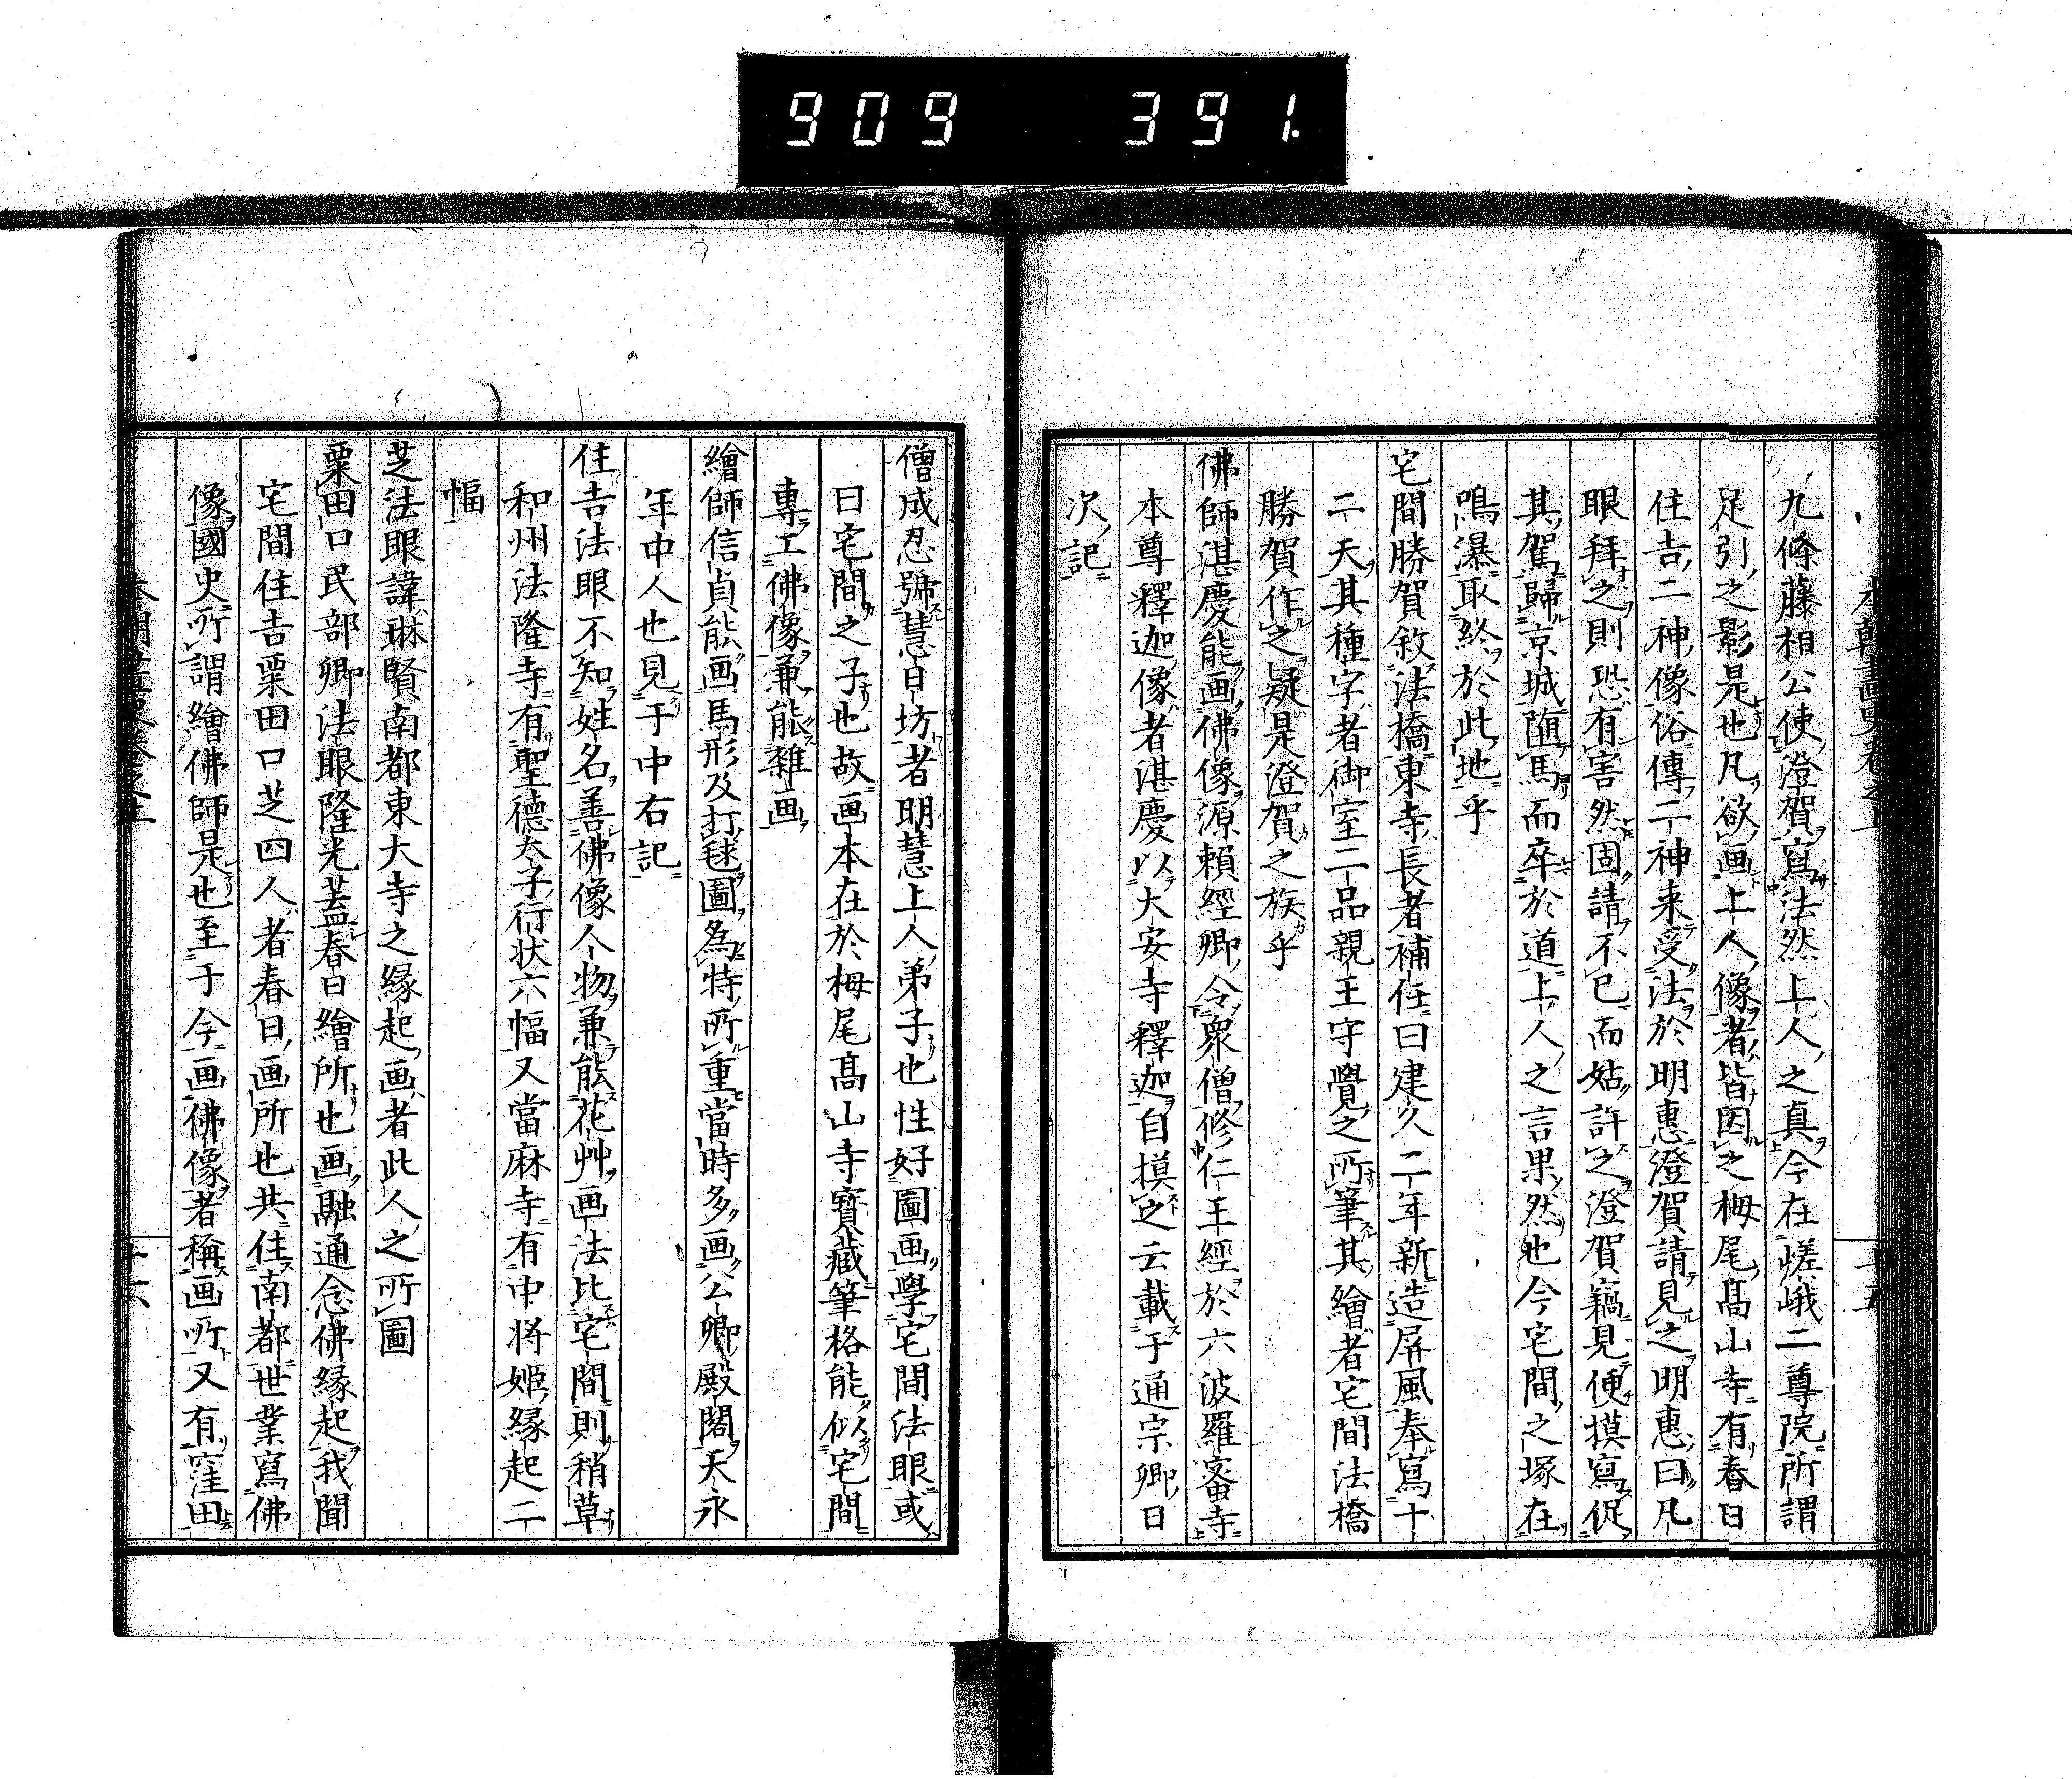 909 391.
本朝畫史卷之上
十五
九條藤相公使澄賀寫法然上人之真今在嵯峨二尊院所謂
足引之影是也凡欲画上人像者皆因之栂尾高山寺有春日
住吉二神像俗傳二神来受法於明惠澄賀請見之明惠曰凡
眼拜之則恐有害然固請不已而姑許之澄賀竊見便摸寫促
其駕歸京城随馬而卒於道上人之言果然也今宅間之塚在
鳴瀑取終於此地乎
宅間勝賀敘法橋東寺長者補任曰建久二年新造屏風奉寫十
二天其種字者御室二品親王守覺之所筆其繪者宅間法橋
勝賀作之疑是澄賀之族乎
佛師湛慶能画佛像源賴經卿令衆僧修仁王經於六波羅蜜寺
本尊釋迦像者湛慶以大安寺釋迦自摸之云載于通宗卿日
次記
僧成忍號慧日坊者明慧上人弟子也性好圖画學宅間法眼或
曰宅間之子也故画本在於栂尾高山寺寶藏筆格能似宅間
專工佛像兼能雜画
繪師信貞能画馬形及打毬圖為特所重當時多画公卿殿閣天永
年中人也見于中右記
住吉法眼不知姓名善佛像人物兼能花艸画法比宅間則稍草
和州法隆寺有聖德太子行狀六幅又當麻寺有中将姬緣起二
幅
芝法眼諱琳賢南都東大寺之縁起画者此人之所圖
粟田口民部卿法眼隆光蓋春日繪所也画融通念佛縁起我聞
宅間住吉粟田口芝四人者春日画所也共住南都世業寫佛
像國史所謂繪佛師是也至于今画佛像者稱画所又有窪田
本朝畫史卷之上
十六